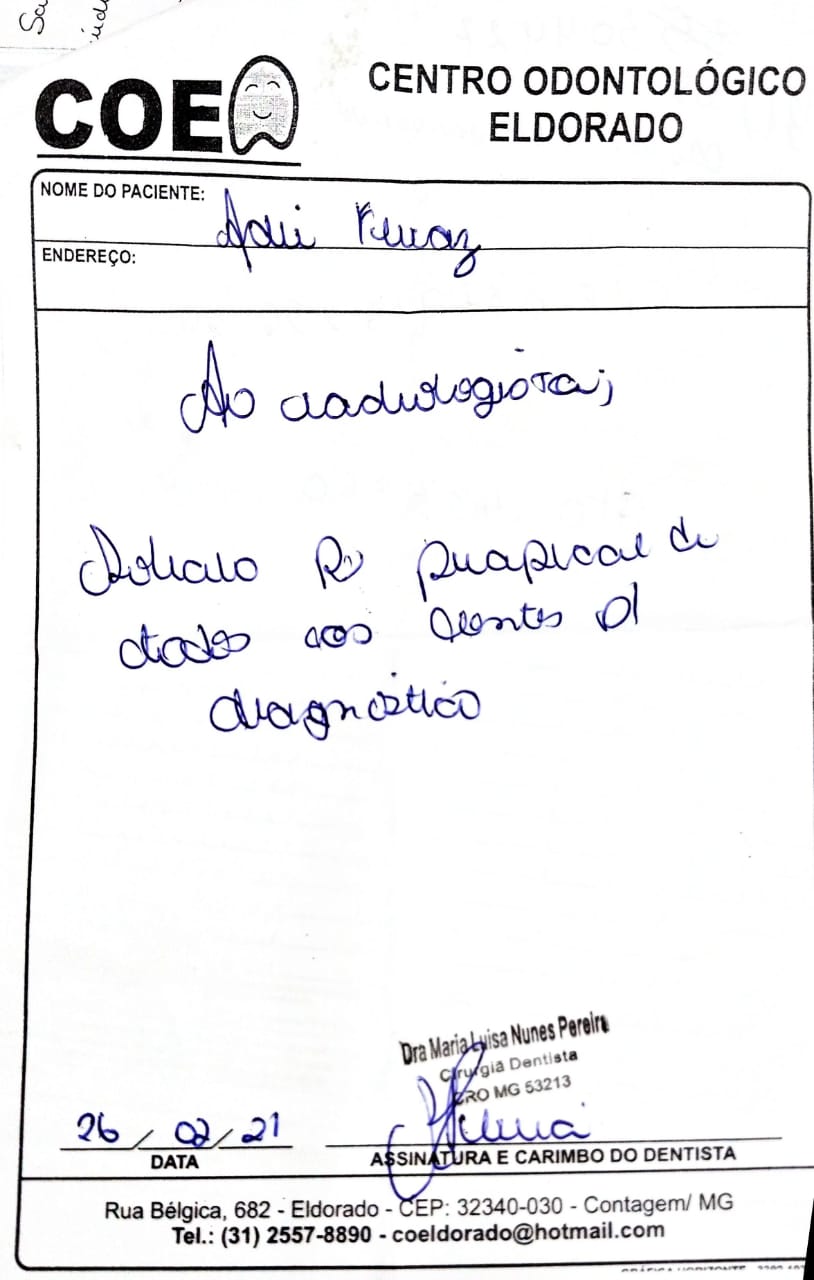 COE
CENTRO ODONTOLÓGICO
ELDORADO
NOME DO PACIENTE:
ENDEREÇO:
Ao radiologista;
Solicito Rx periapical de
todos os dentes p/
diagnóstico
Dra Maria Luisa Nunes Pereira
Cirurgiã Dentista
CRO MG 53213
26 / 02 / 21
DATA
ASSINATURA E CARIMBO DO DENTISTA
Rua Bélgica, 682 - Eldorado - CEP: 32340-030 - Contagem/ MG
Tel.: (31) 2557-8890 - coeldorado@hotmail.com